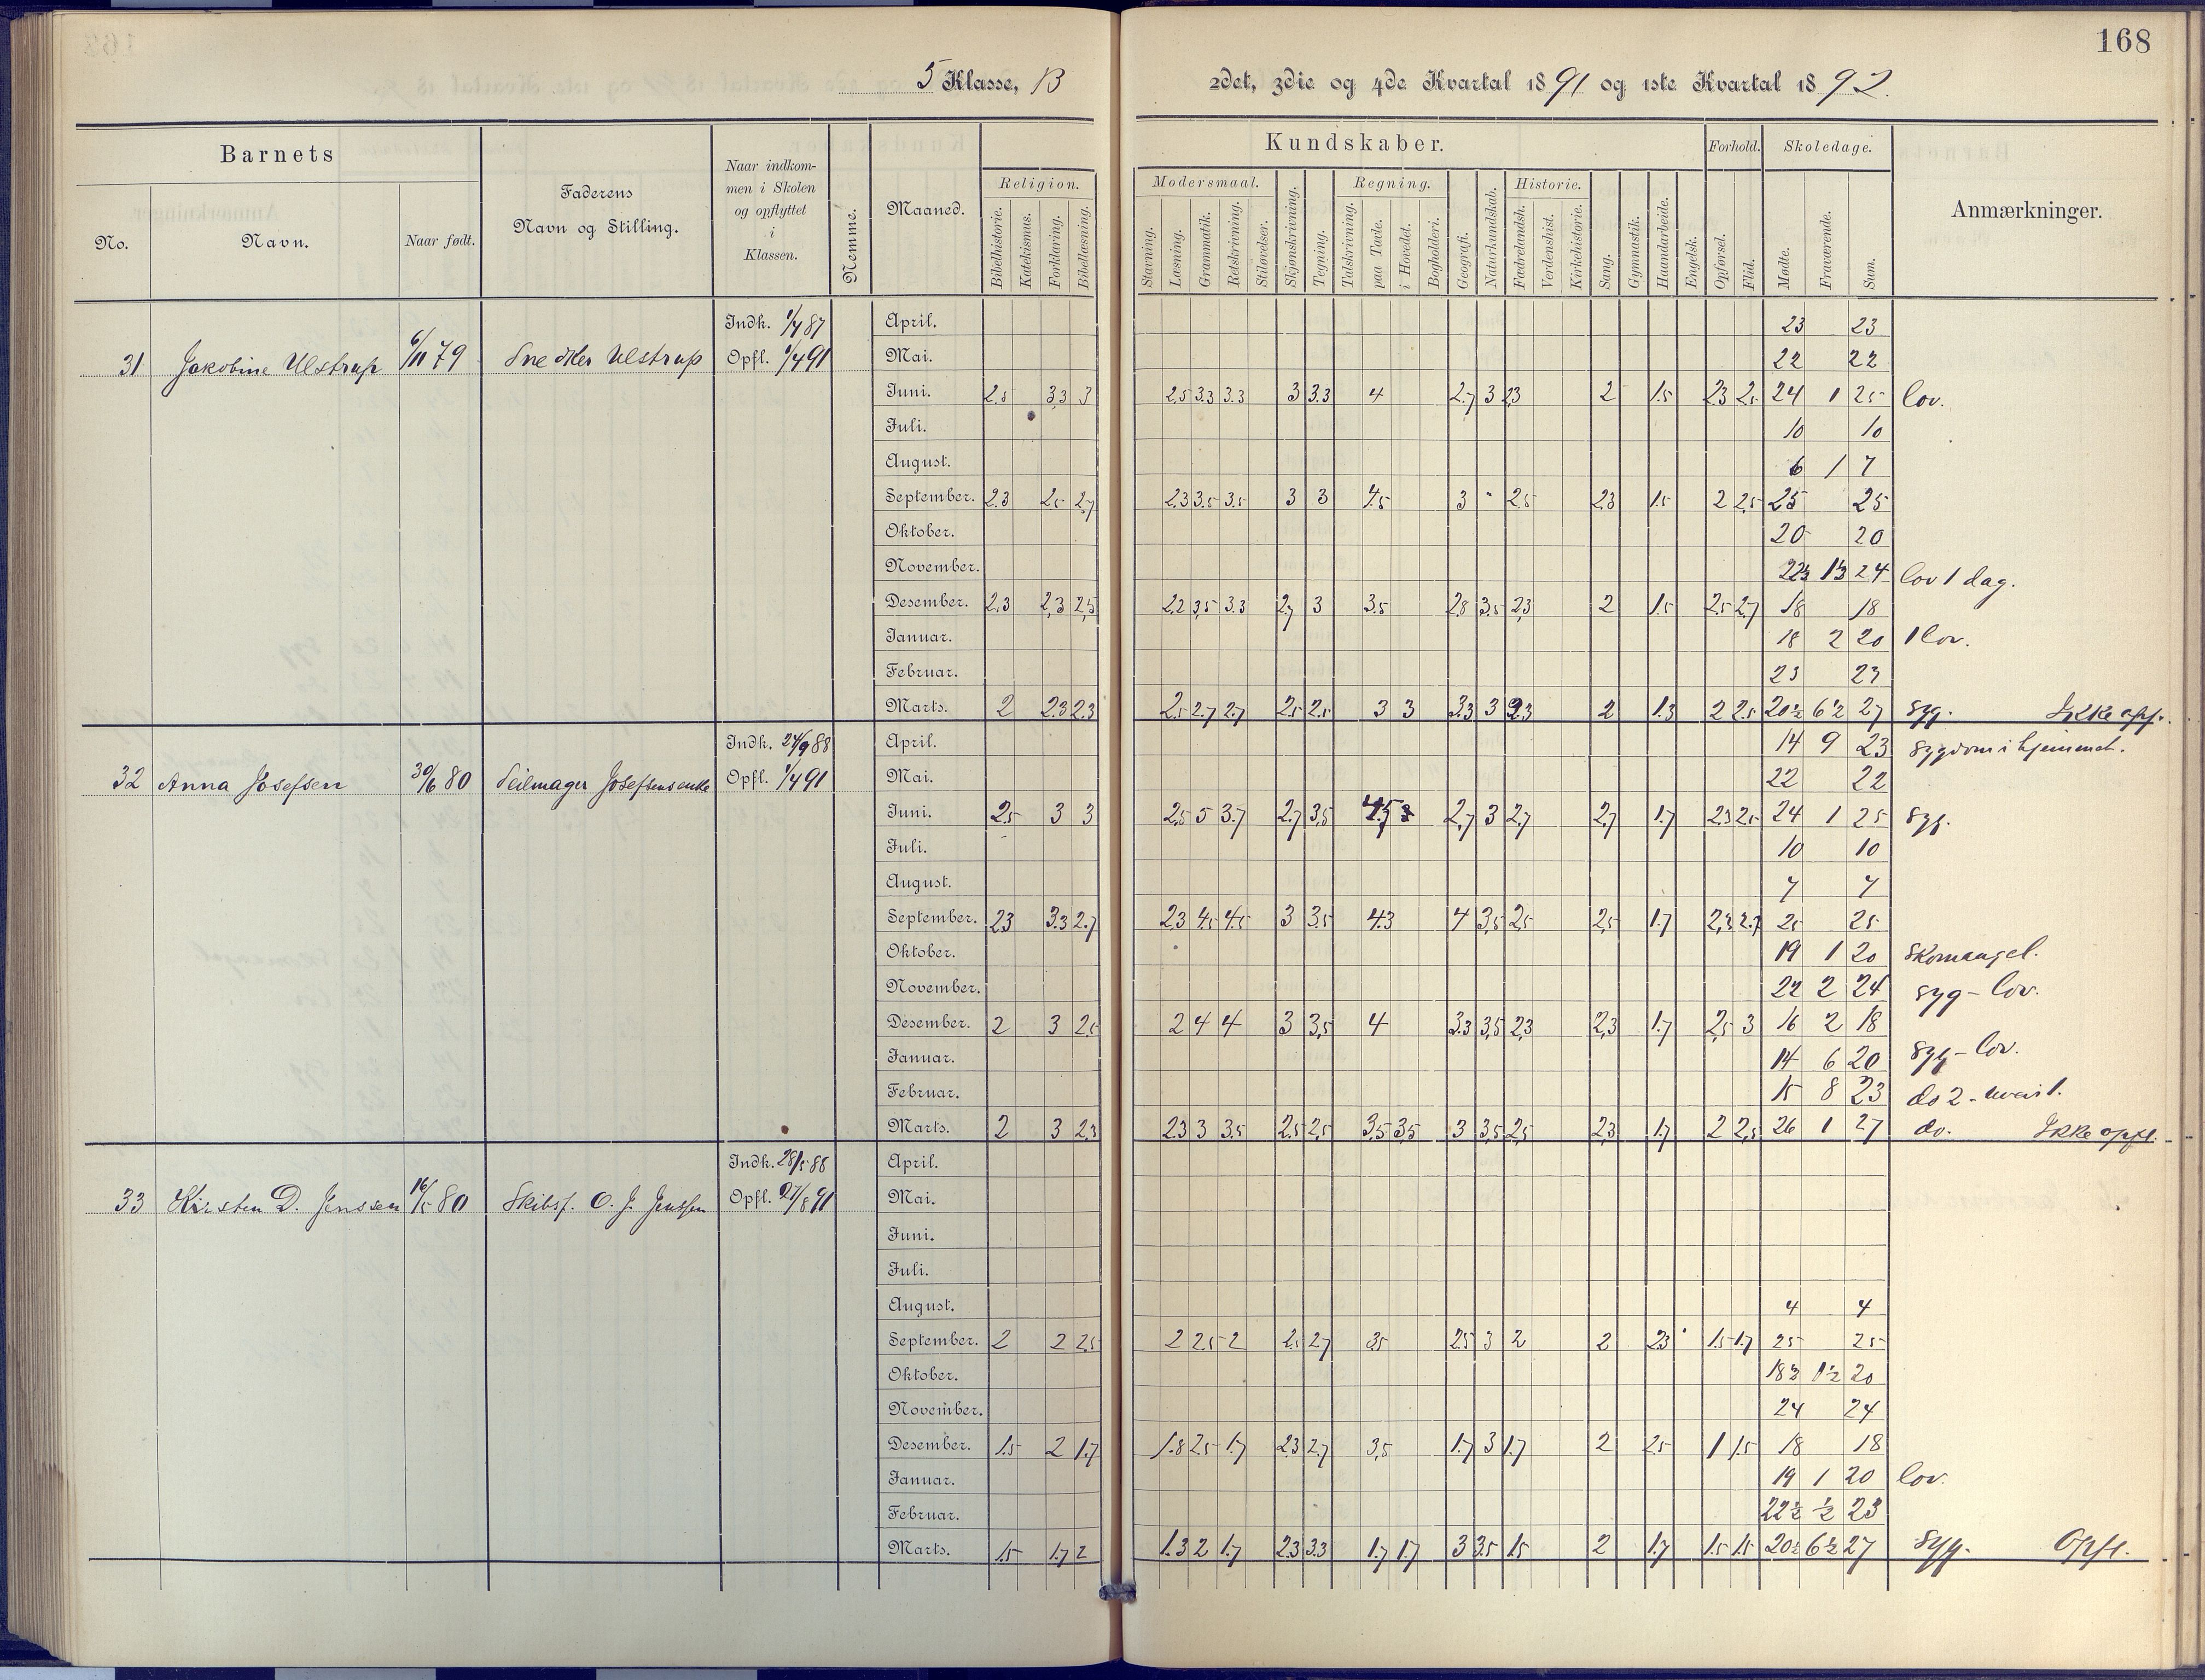 168
5 Klasse, B 2det, 3die og 4de Kvartal 1891 og 1ste Kvartal 1892.
Barnets
No.
Navn.
Naar født.
Faderens
Navn og Stilling.
Naar indkom-
men i Skolen
og opflyttet
i
Klassen.
Nemme.
Maaned.
Kundskaber.
Religion.
Bibelhistorie.
Katekismus.
Forklaring.
Bibellæsning.
Modersmaal.
Stavning.
Læsning.
Grammatik.
Retskrivning.
Stiløvelser.
Skjønskrivning.
Tegning.
Regning.
Talskrivning.
paa Tavle.
i Hovedet.
Bogholderi.
Geografi.
Naturkundskab.
Historie.
Fædrelandsh.
Verdenshist.
Kirkehistorie.
Sang.
Gymnastik.
Haandarbeide.
Engelsk.
Forhold.
Opførsel.
Flid.
Skoledage.
Mødte.
Fraværende.
Sum.
Anmærkninger.
31 Jakobine Ulstrup 6/11 79 Snedker Ulstrup
Indk. 1/4 87
Opfl. 1/4 91
April. 23 23
Mai. 22 22
Juni. 2.5 3.3 3 2.5 3.3 3.3 3 3.3 4 2.7 3 2.3 2 1.5 2.3 2.5 24 1 25 lov.
Juli. 10 10
August. 6 1 7
September. 2.3 2.5 2.7 2.3 3.5 3.5 3 3 4.5 3 " 2.5 2.3 1.5 2 2.5 25 25
Oktober. 20 20
November. 22½ 1½ 24 lov 1 dag.
Desember. 2.3 2.3 2.5 2.2 3.5 3.3 2.7 3 3.5 2.8 3.5 2.3 2 1.5 2.5 2.7 18 18
Januar. 18 2 20 1 lov.
Februar. 23 23
Marts. 2 2.3 2.3 2.5 2.7 2.7 2.5 2.5 3 3 3.3 3 2.3 2 1.3 2 2.5 20½ 6½ 27 syg. Ikke opf.
32 Anna Josefsen 30/6 80 Seilmager Josefsens enke
Indk. 24/9 88
Opfl. 1/4 91
April. 14 9 23 sygdom i hjemmet.
Mai. 22 22
Juni. 2.5 3 3 2.5 5 3.7 2.7 3.5 4.5 2.7 3 2.7 2.7 1.7 2.3 2.5 24 1 25 syg.
Juli. 10 10
August. 7 7
September. 2.3 3.3 2.7 2.3 4.5 4.5 3 3.5 4.3 4 3.5 2.5 2.5 1.7 2.3 2.7 25 25
Oktober. 19 1 20 Skomangel.
November. 22 2 24 syg - lov.
Desember. 2 3 2.5 2 4 4 3 3.5 4 3.3 3.5 2.3 2.3 1.7 2.5 3 16 2 18
Januar. 14 6 20 syg - lov.
Februar. 15 8 23 do 2 -
Marts. 2 3 2.3 2.3 3 3.5 2.5 2.5 3.5 3.5 3 3.5 2.5 2.3 1.7 2 2.5 26 1 27 do. Ikke opfl.
33 Kirsten D. Jenssen 16/5 80 Skibsf. O. J. Jenssen
Indk. 28/5 88
Opfl. 27/8 91
April.
Mai.
Juni.
Juli.
August. 4 4
September. 2 2 2.5 2 2.5 2 2.5 2.7 3.5 2.5 3 2 2 2.3 1.5 1.7 25 25
Oktober. 18½ 1½ 20
November. 24 24
Desember. 1.5 2 1.7 1.8 2.5 1.7 2.3 2.7 3.5 1.7 3 1.7 2 2.5 1 1.5 18 18
Januar. 19 1 20 lov.
Februar. 22½ ½ 23
Marts. 1.5 1.7 2 1.3 2 1.7 2.3 3.3 1.7 1.7 3 3.5 1.5 2 1.7 1.5 1.5 20½ 6½ 27 syg. Opfl.